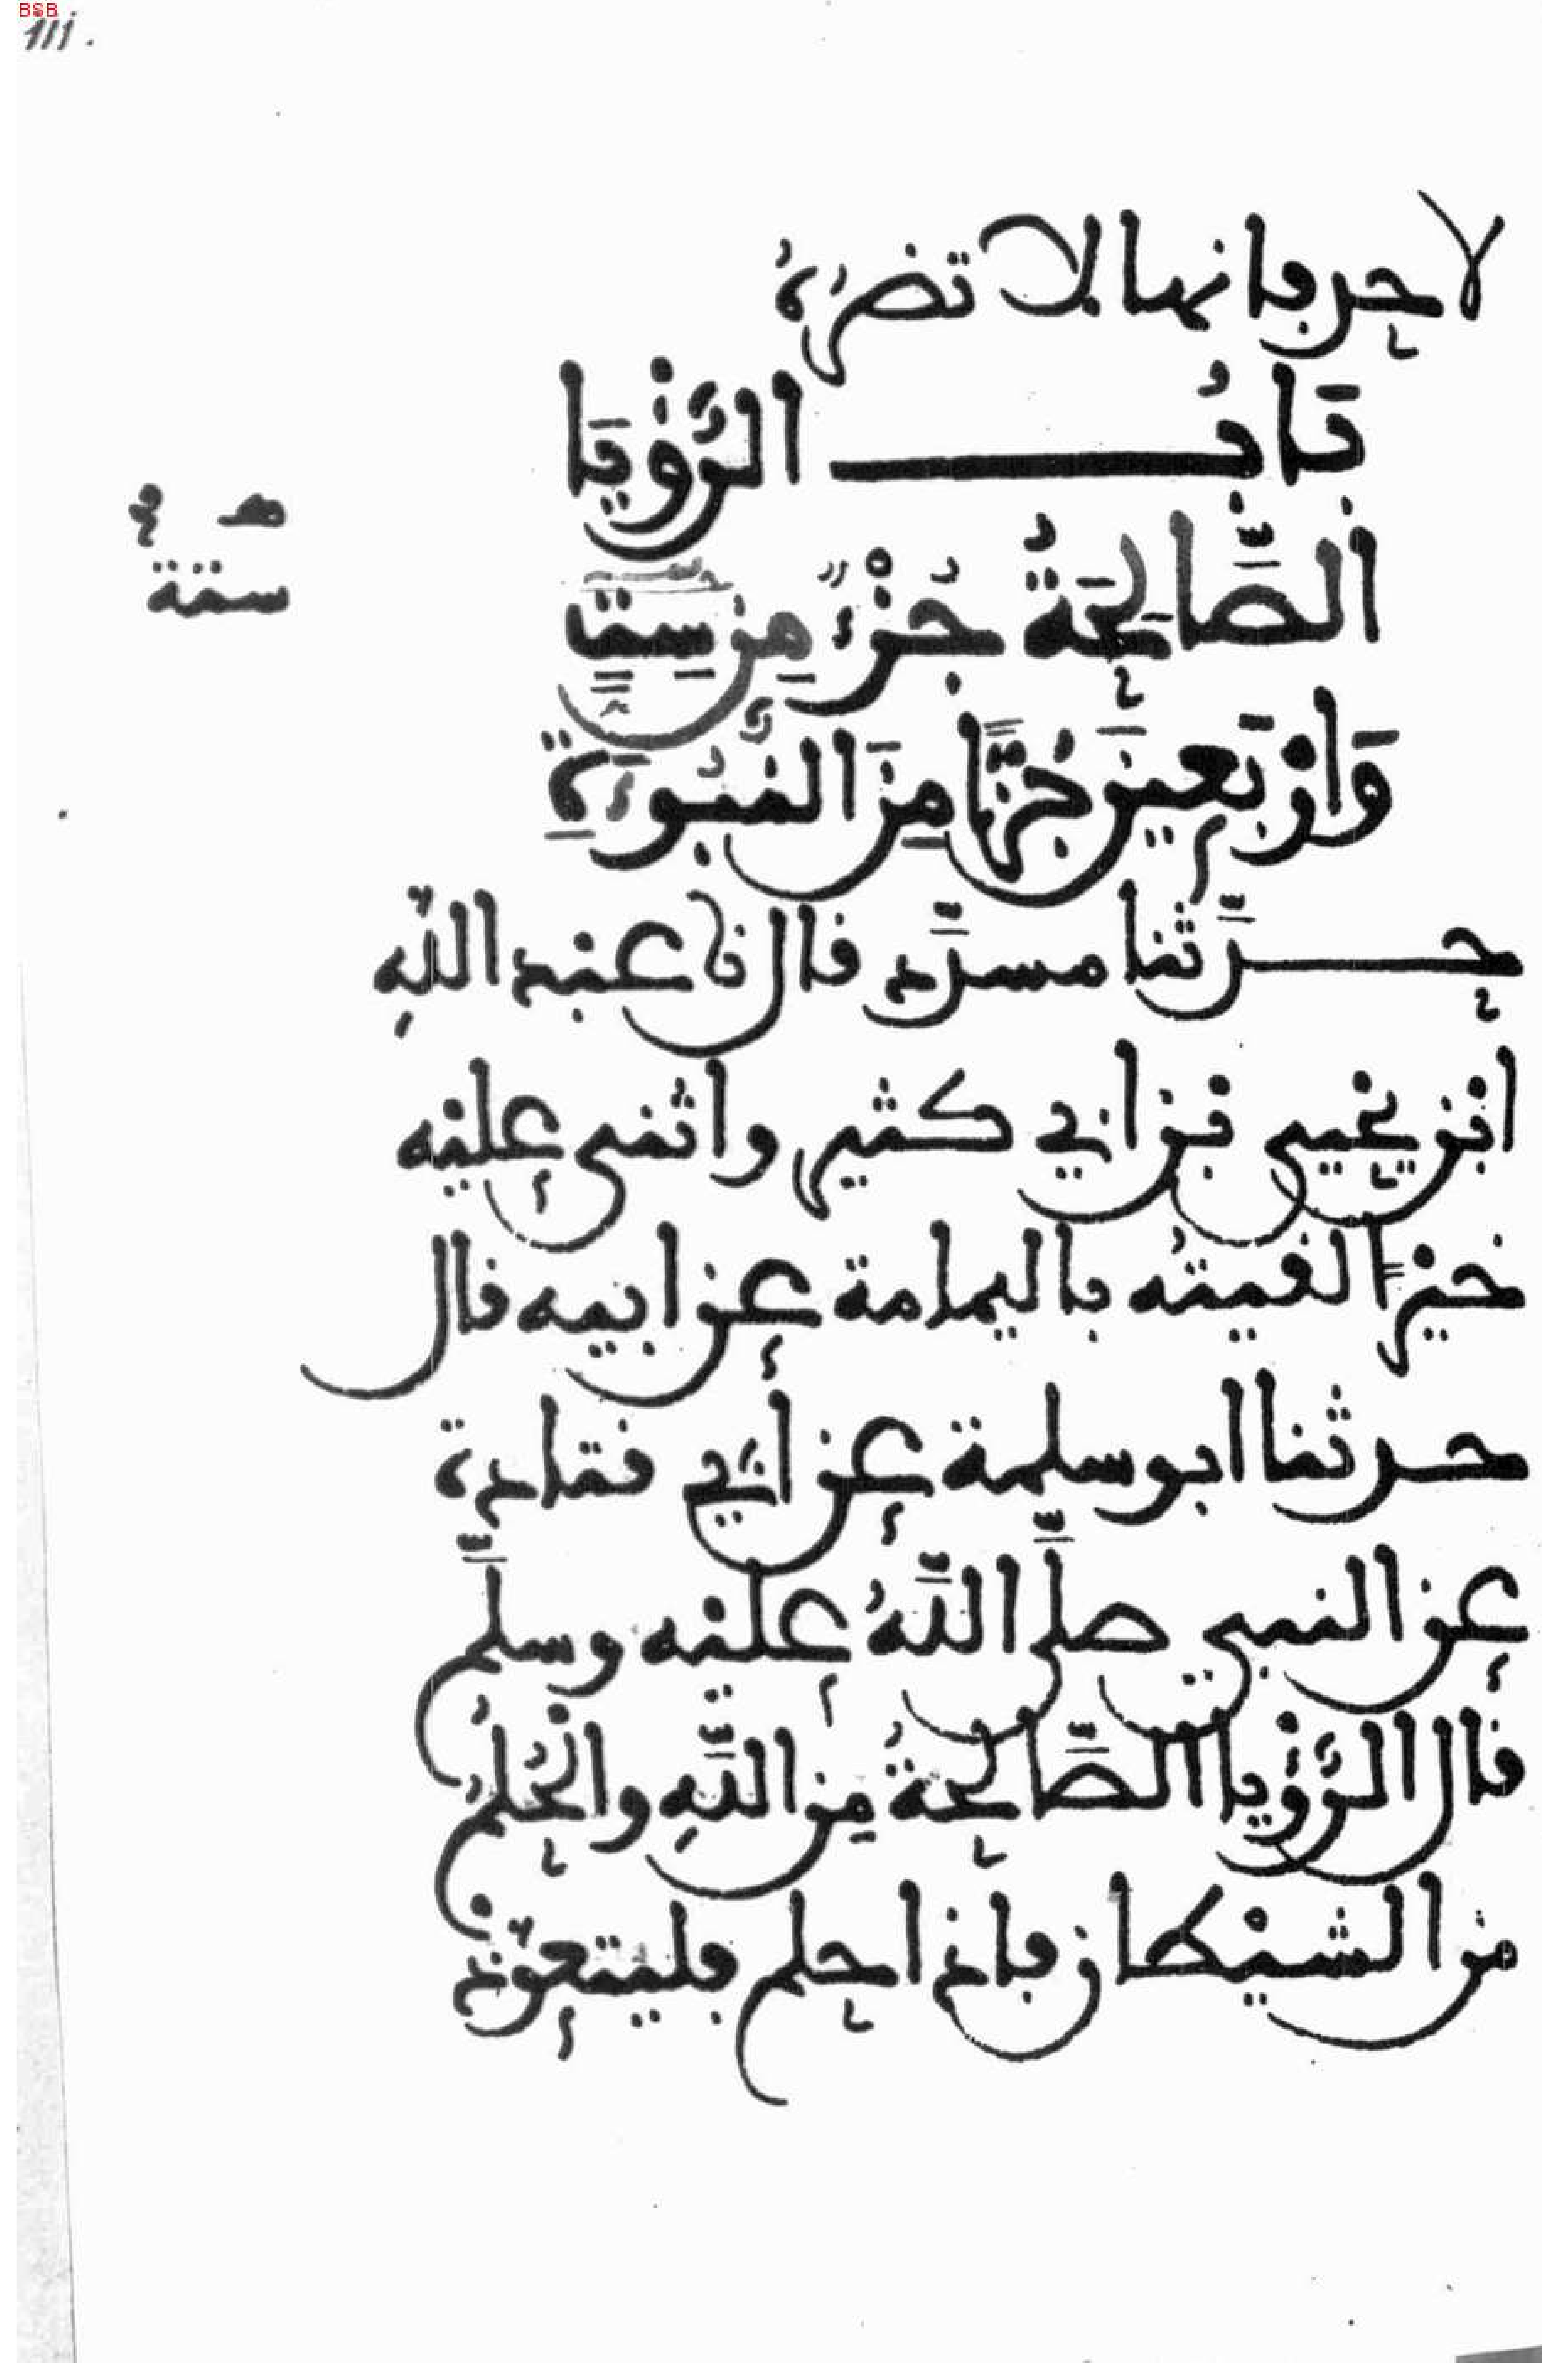 BSB
111.
لاحد فانها لا تضره
بَابُ الرُّؤْيَا
الصَّالِحَةُ جُزْءٌ مِن سِتَّةٍ
ستة
وَارْبَعِينَ جُزْءًا مِنَ النُّبُوءَةِ
حدَّثنا مسدَّد قال نا عبْد اللّهِ
ابْن يحْيى بْن ابي كثير واثنى عليْه
خيْرًا لقيتُه باليمامة عن ابيه قال
حدثنا ابو سلمة عن أبي قتادة
عن النبي صلَّى اللَّهُ عليْه وسلَّم
قال الرُّؤْيا الصَّالحةُ مِن اللَّهِ والحُلْمُ
من الشيْطان فاذا حلم فليتعوّذْ